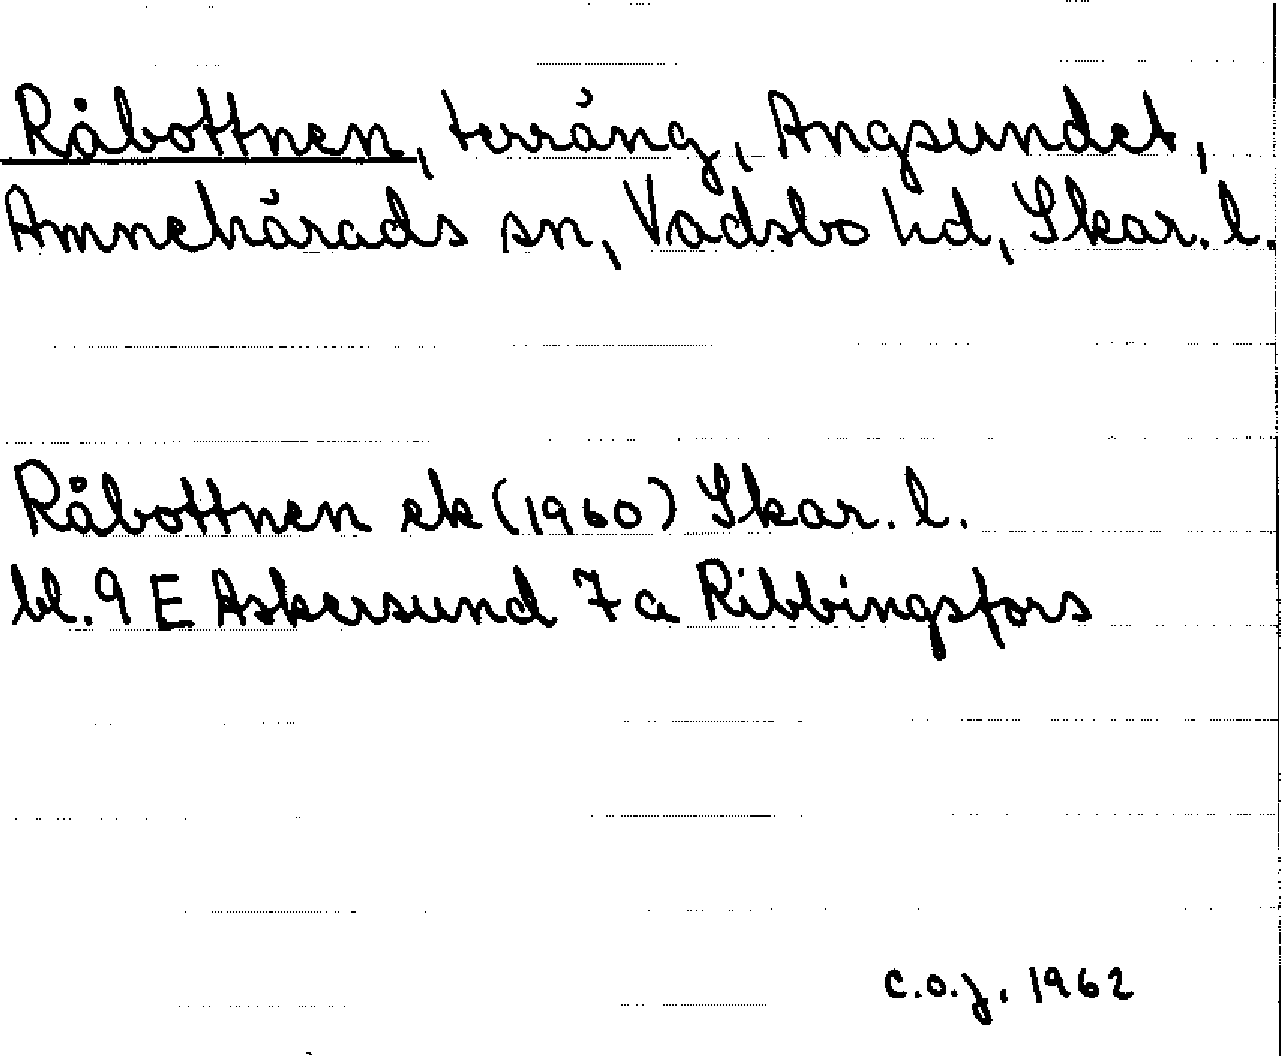 Råbottnen, terräng, Angsundet,
Amnehärads sn, Vadsbo hd, Skar. l.
Råbottnen ek (1960) Skar. l.
bl. 9 E Askersund 7 a Ribbingsfors
C.O.J. 1962